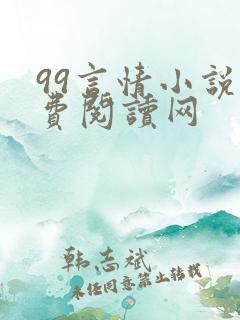 99言情小说
費閱讀网
韩志斌
未经同意禁止转载